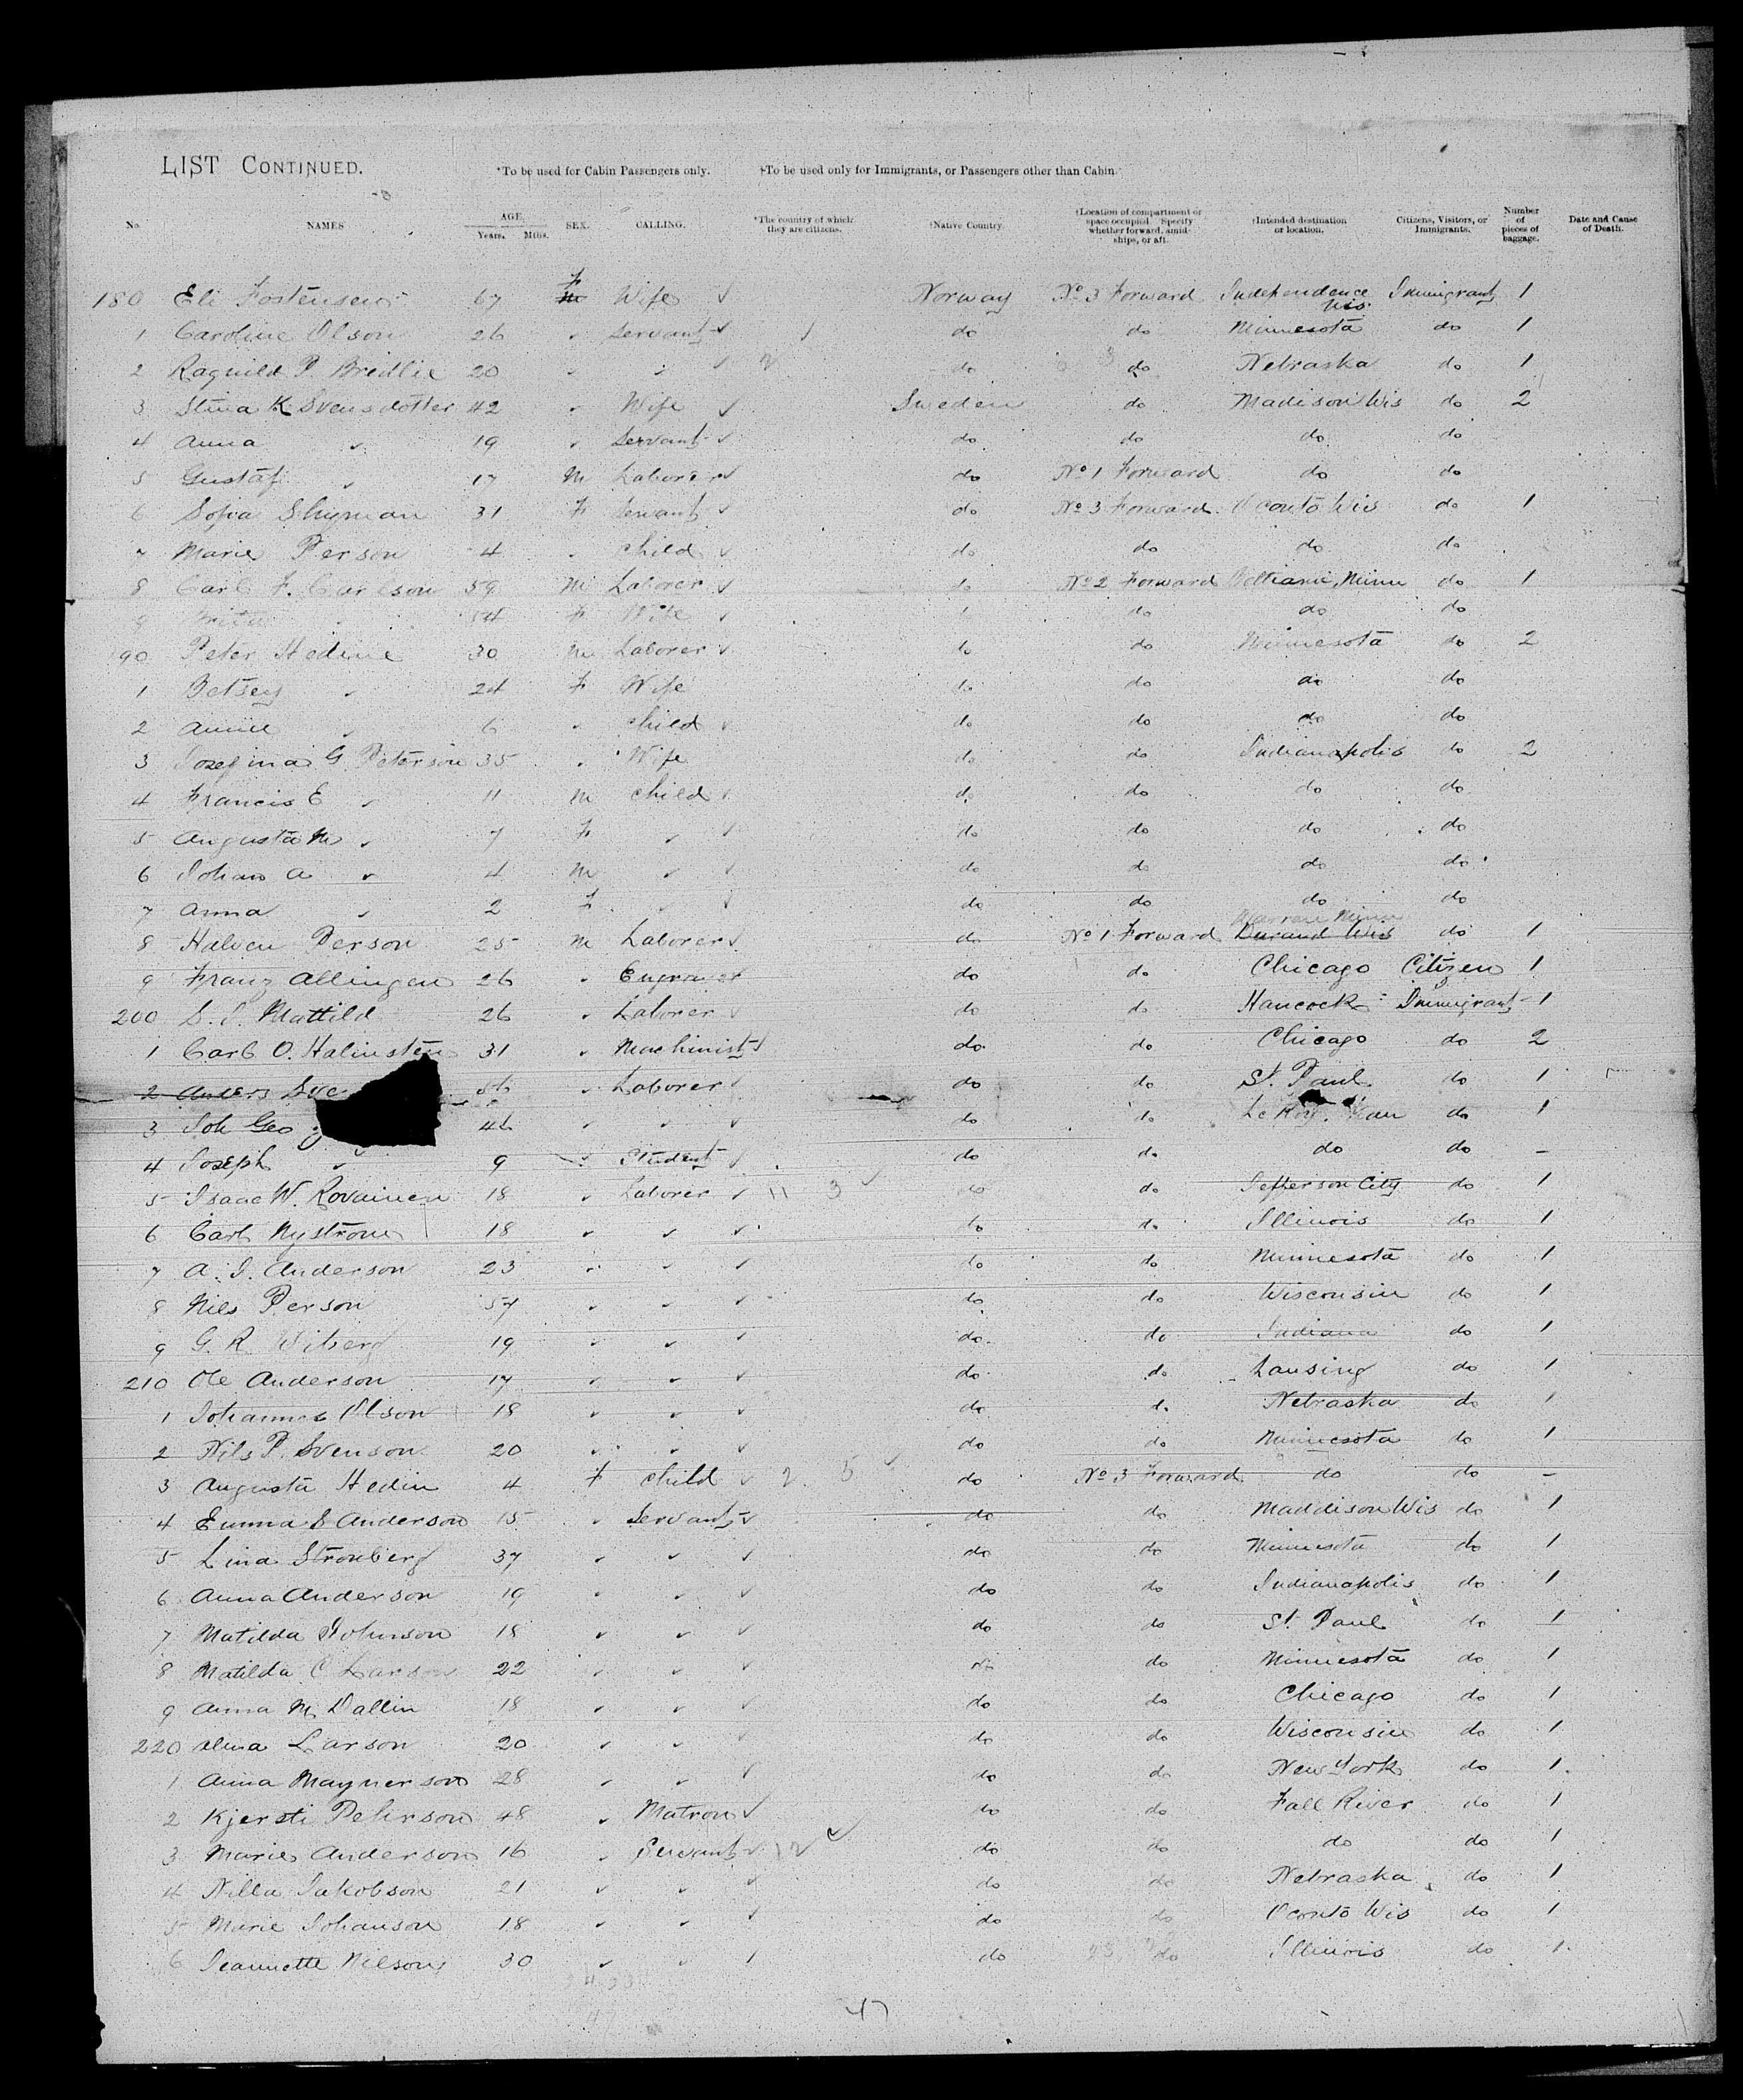 LIST CONTINUED. *To be used for Cabin Passengers only. †To be used only for Immigrants, or Passengers other than Cabin.
No. NAMES AGE. Years. Mths. SEX. CALLING. *The country of which they are citizens. †Native Country †Location of compartment or space occupied. Specify whether forward, amidships, or aft. †Intended destination or location. Citizens, Visitors, or Immigrants. Number of pieces of baggage. Date and Cause of Death.
180 Eli 67 F Wife Norway No 3 Forward Independence Wis. Immigrant 1
1 Caroline Olson 26 " Servant do do Minnesota do 1
2 Ragnild P. Bredlie 20 " " do do Nebraska do 1
3 Stina K Svensdotter 42 " Wife Sweden do Madison Wis do 2
4 Anna " 19 " Servant do do do do
5 Gustaf " 17 M Laborer do No 1 Forward do do
6 Sofia 31 F Servant do No 3 Forward Oconto Wis do 1
7 Marie Person 4 " Child do do do do
8 Carl F. Carlson 59 M Laborer do No 2 Forward Minn do 1
9 " 54 F Wife do do do
190 Peter Hedine 30 M Laborer do do Minnesota do 2
1 Betsey " 24 F Wife do do do do
2 Annie " 6 " Child do do do do
3 Josefina G. Peterson 35 " Wife do do Indianapolis do 2
4 Francis E " 11 M Child do do do do
5 Augusta M " 7 F " do do do do
6 Johan A " 4 M " do do do do
7 Anna " 2 F " do do do do
8 Halven Person 25 M Laborer do No 1 Forward Durand Wis Warren Minn do 1
9 Franz Allingen 26 " Engraver do do Chicago Citizen 1
200 S. J. Mattild 26 " Laborer do do Hancock Immigrant 1
1 Carl O. Halinsten 31 " Machinist do do Chicago do 2
2 Anders Sve 56 " Laborer do do St. Paul do 1
3 Joh Geo 46 " " do do Le Roy do 1
4 Joseph " 9 " Student do do do do –
5 Isaac W. Rovainen 18 " Laborer 11 3 do do Jefferson City do 1
6 Carl Nystrom 18 " " do do Illinois do 1
7 A. J. Anderson 23 " " do do Minnesota do 1
8 Nils Person 57 " " do do Wisconsin do 1
9 G. R. Wiberg 19 " " do do Indiana do 1
210 Ole Anderson 17 " " do do Lansing do 1
1 Johannes Olson 18 " " do do Nebraska do 1
2 Nils P. Svenson 20 " " do do Minnesota do 1
3 Augusta Hedin 4 F Child 2 5 do No 3 Forward do do –
4 Emma S Anderson 15 " Servant do do Maddison Wis do 1
5 Lina Stromberg 37 " " do do Minnesota do 1
6 Anna Anderson 19 " " do do Indianapolis do 1
7 Matilda Johnson 18 " " do do St. Paul do 1
8 Matilda C Larson 22 " " do do Minnesota do 1
9 Anna M. Dallin 18 " " do do Chicago do 1
220 Alma Larson 20 " " do do Wisconsin do 1
1 Anna Maynerson 28 " " do do New York do 1
2 Kjersti Peterson 48 " Matron do do Fall River do 1
3 Marie Anderson 16 " Servant 12 do do do do 1
4 Nilla Jakobson 21 " " do do Nebraska do 1
5 Marie Johanson 18 " " do do Oconto Wis do 1
6 Jeannette Nilson 30 " " do do Illinois do 1
47